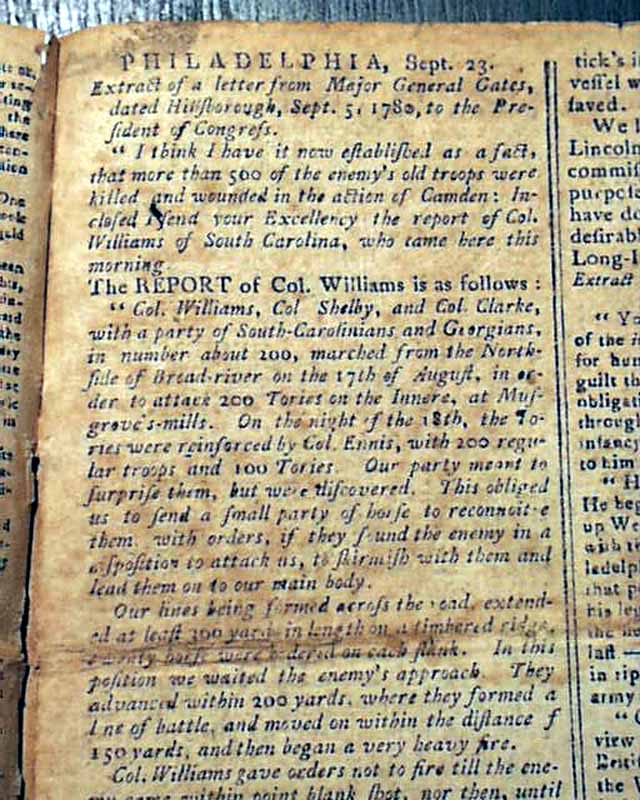 PHILADELPHIA, Sept. 23.
Extract of a letter from Major General Gates,
dated Hillſborough, Sept. 5, 1780, to the Pre-
ſident of Congreſs.
" I think I have it now eſtabliſhed as a fact,
that more than 500 of the enemy's old troops were
killed and wounded in the action of Camden: In-
cloſed I ſend your Excellency the report of Col.
Williams of South Carolina, who came here this
morning.
The REPORT of Col. Williams is as follows:
" Col. Williams, Col Shelby, and Col. Clarke,
with a party of South-Carolinians and Georgians,
in number about 200, marched from the North-
ſide of Broad-river on the 17th of Auguſt, in or-
der to attack 200 Tories on the Innere, at Muſ-
grove's-mills. On the night of the 18th, the To-
ries were reinforced by Col. Ennis, with 200 regu-
lar troops and 100 Tories. Our party meant to
ſurpriſe them, but were diſcovered. This obliged
us to ſend a ſmall party of horſe to reconnoitre
them, with orders, if they found the enemy in a
diſpoſition to attack us, to ſkirmiſh with them and
lead them on to our main body.
Our lines being formed acroſs the road, extend-
ed at leaſt 300 yards in length on a timbered ridge,
twenty horſe were ordered on each flank. In this
poſition we waited the enemy's approach. They
advanced within 200 yards, where they formed a
line of battle, and moved on within the diſtance of
150 yards, and then began a very heavy fire.
Col. Williams gave orders not to fire till the ene-
my came within point blank ſhot, nor then, until
tick's
veſſel
ſaved.
We
Lincoln
have
Long-I
Extract
" Yo
of the
for
guilt
obligati
through
infancy
to him
" H
He beg
up
that
his
laſt —
in
army
" C
view
the